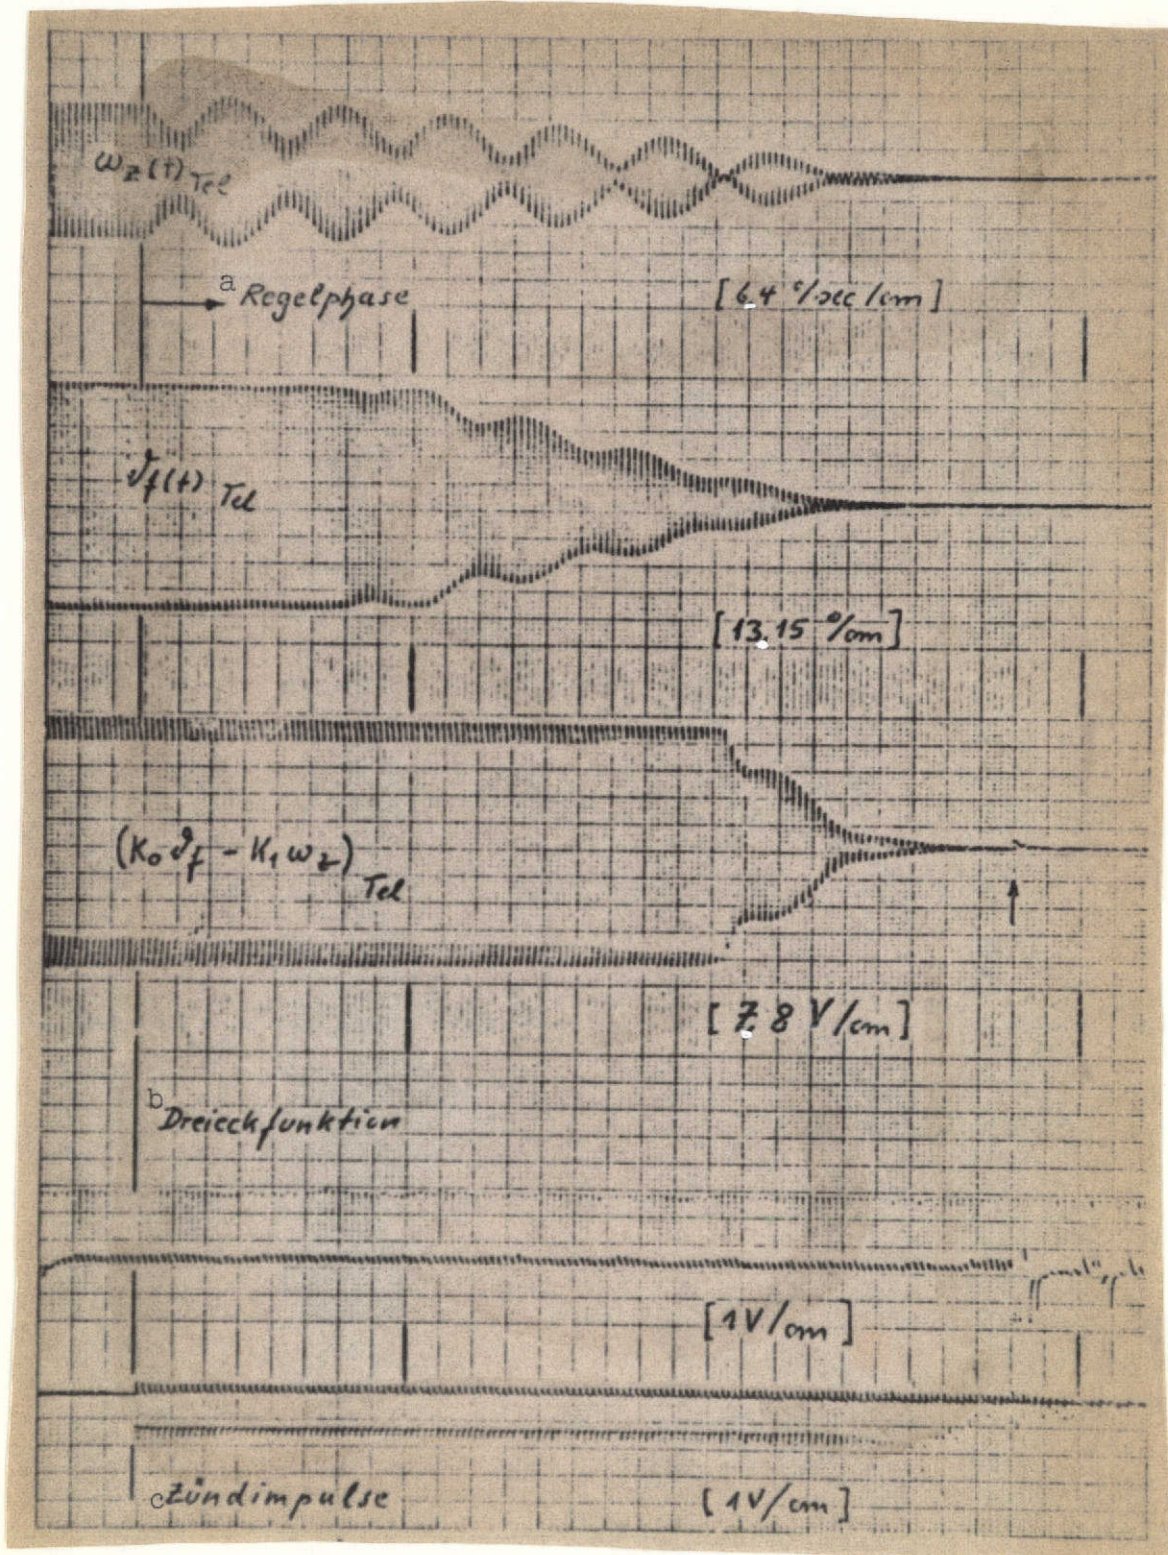 ω_z(t)_Tel
a Regelphase
[6,4 °/sec/cm]
ϑ_f(t)_Tel
[13,15 °/cm]
(K₀ϑ_f - K₁ω_z)_Tel
[7,8 V/cm]
b Dreieckfunktion
[1V/cm]
c Zündimpulse
[1V/cm]